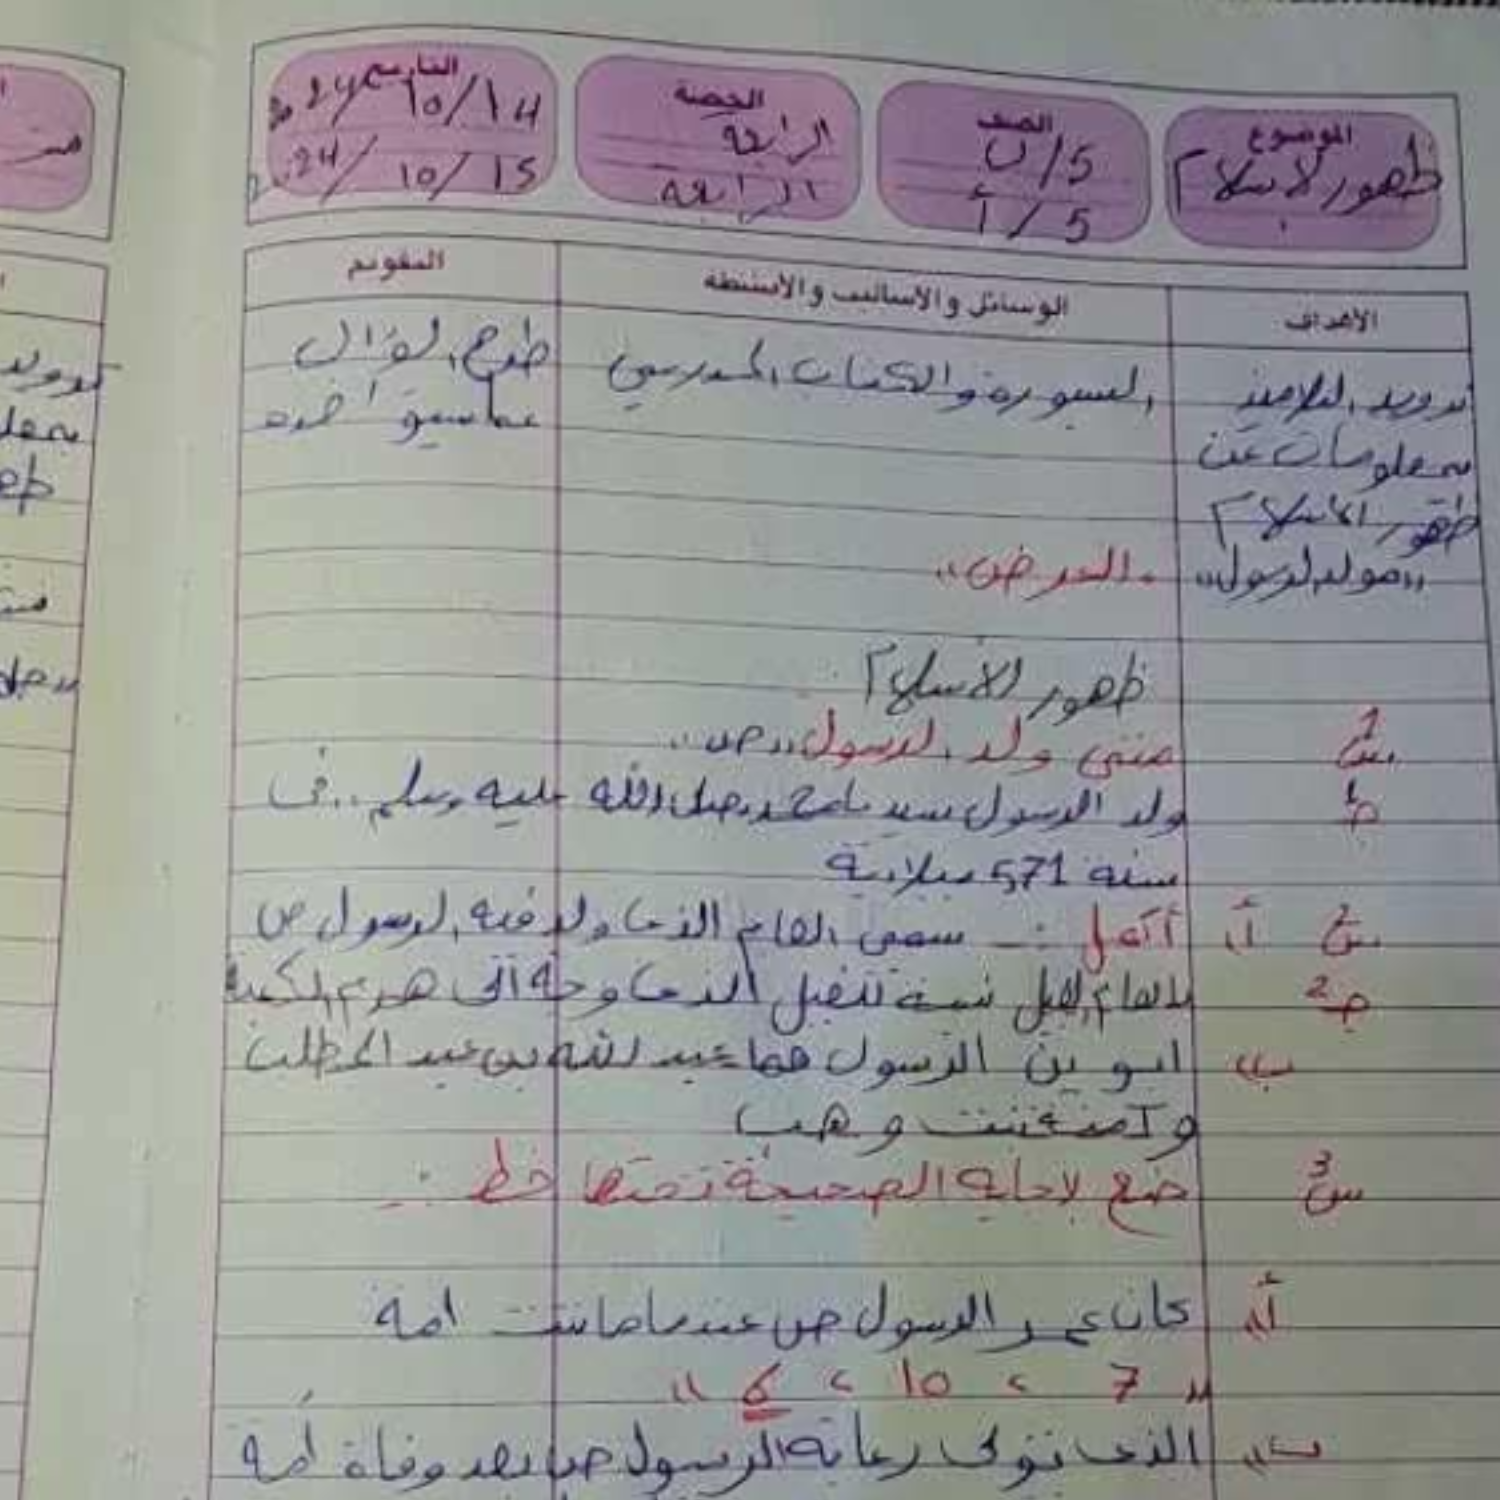 الموضوع
ظهور الاسلام
الصف
5/ب
5/أ
الحصة
الرابعة
الرابعة
التاريخ
10/14/2024
10/15/
الأهداف
الوسائل والأساليب والأنشطة
التقويم
تزويد التلاميذ
بمعلومات عن
ظهور الاسلام
،،مولد الرسول،،
السبورة والكتاب المدرسي
طرح السؤال
عما سبق اخده
،،العرض،،
ظهور الأسلام
س1 متى ولد الرسول،،ص،،
ج1 ولد الرسول سيدنا محمد،صلى الله عليه وسلم،،في
سنة 571 ميلادية
س2 أ،، أكمل :ـ سمي العام الذي ولد فيه الرسول ص
ج2 بالعام الفيل نسبة للفيل الذي وجه الى هدم الكعبة
ب،، ابوين الرسول هما عبد الله بن عبد المطلب
و آمنة بنت وهب
س3 ضع لاجابة الصحيحة تحتها خط :ـ
أ،، كان عمر الرسول ص عندما ماتت امه
،، 7 ، 10 ، 6 ،،
ب،، الذي تولى رعاية الرسول ص بعد وفاة أمه